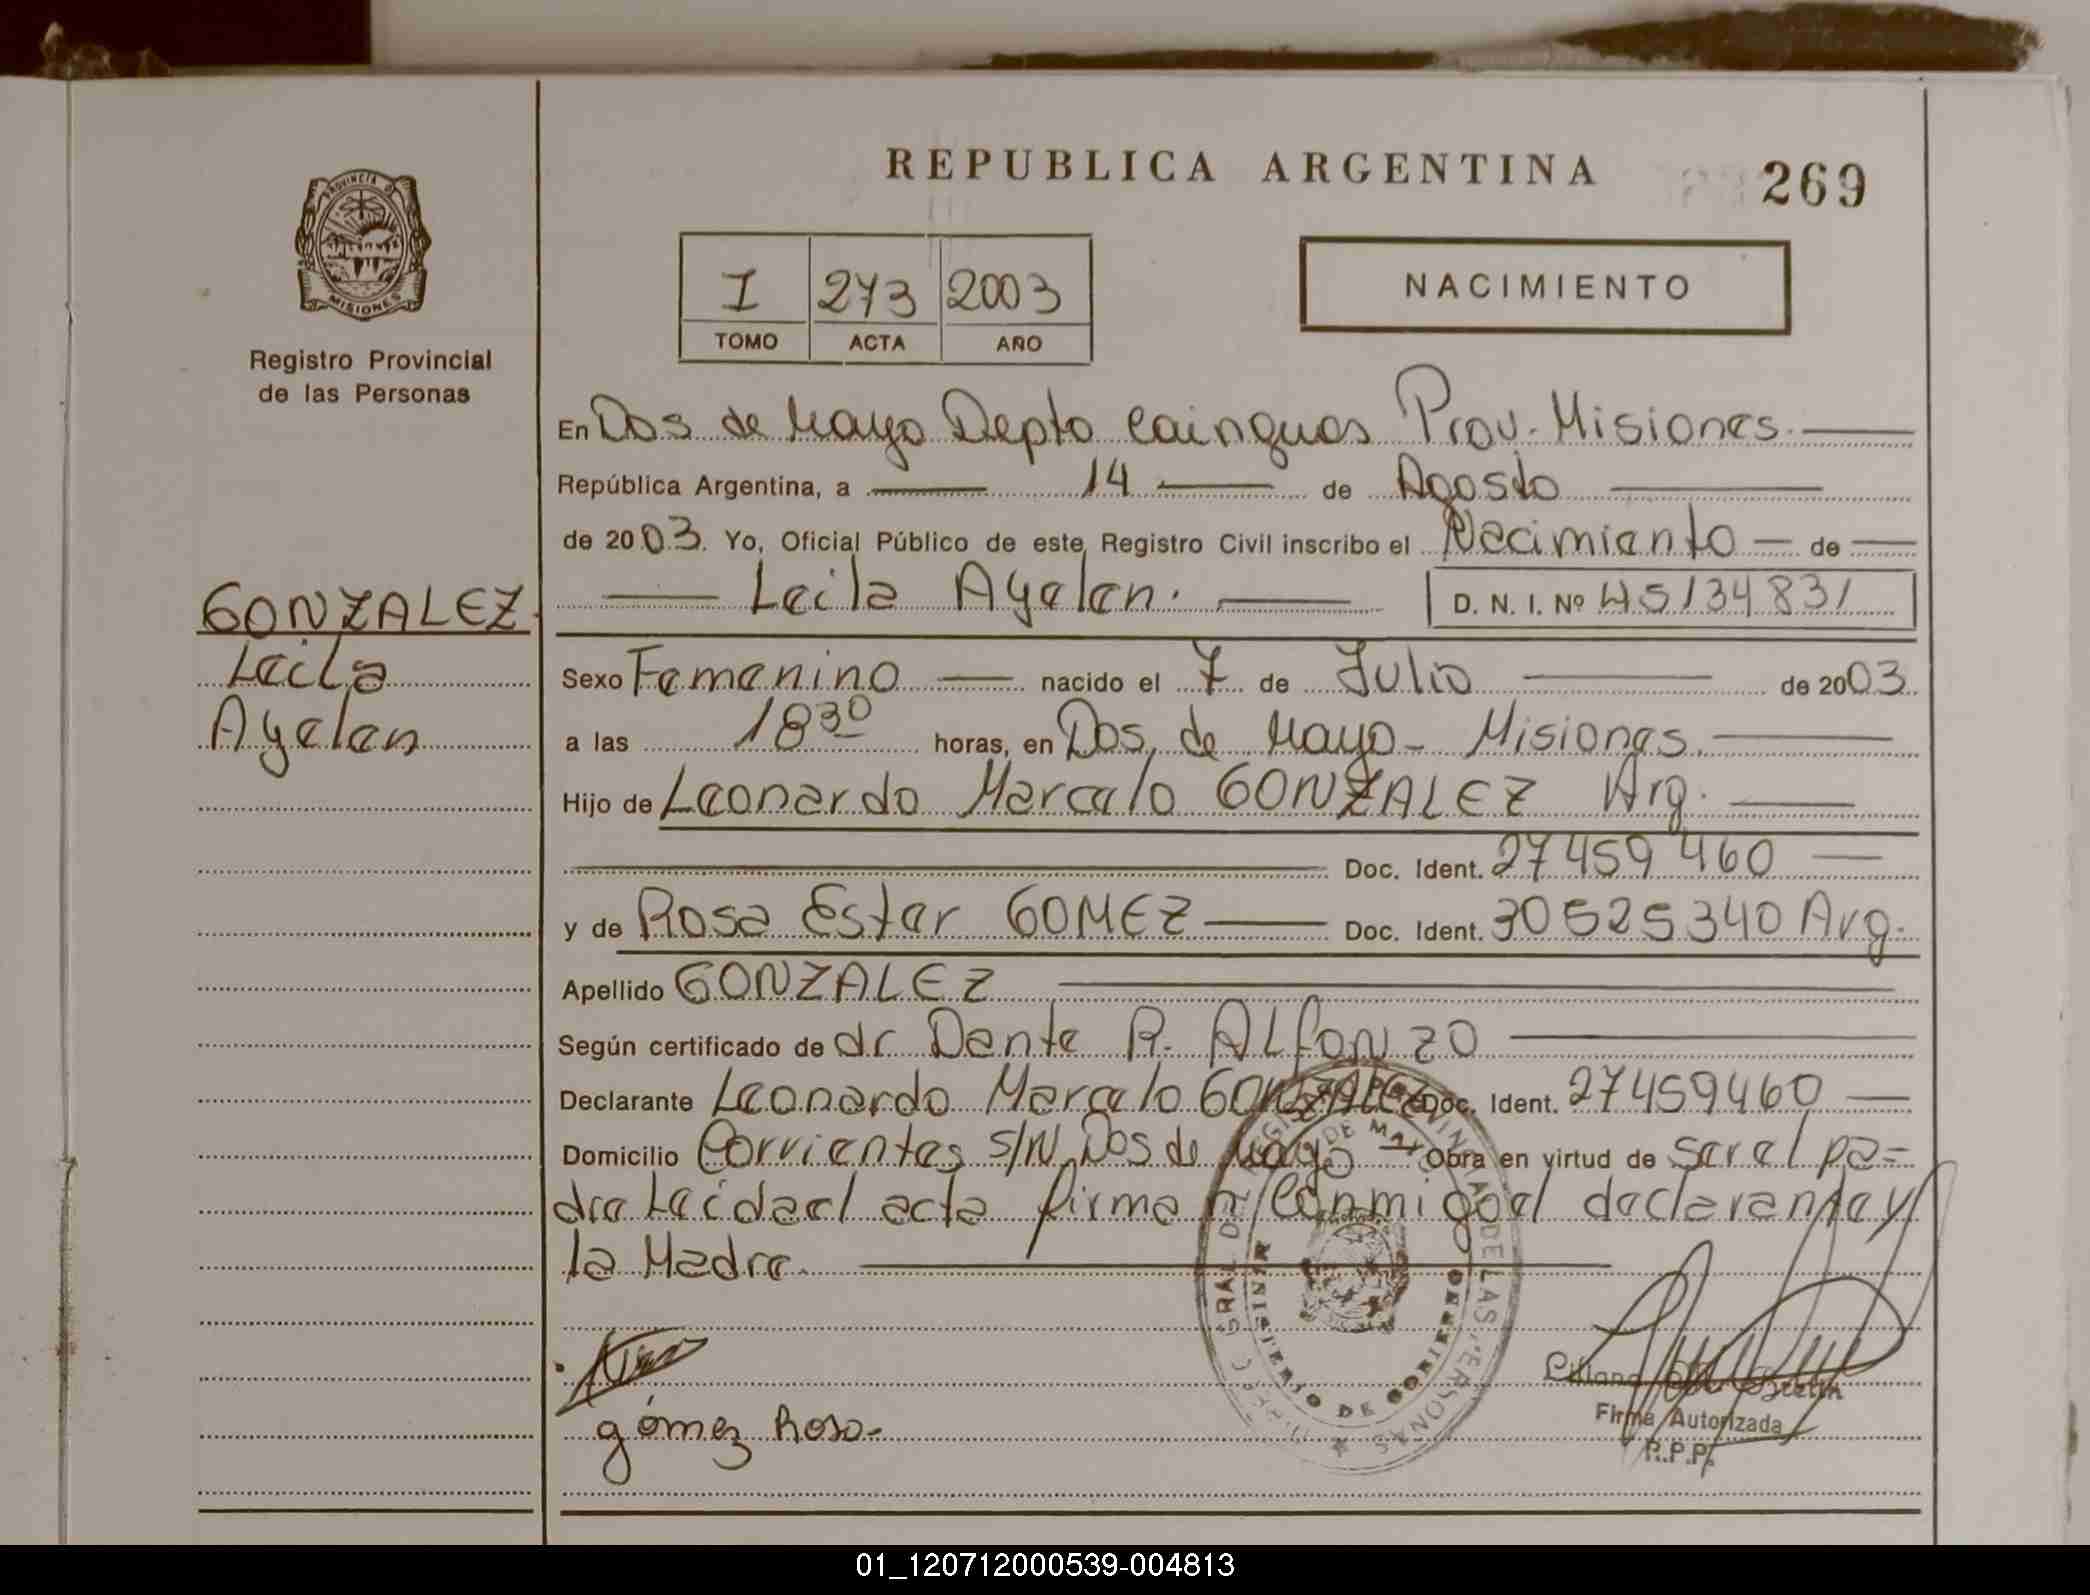 REPUBLICA ARGENTINA
269
PROVINCIA DE
MISIONES
Registro Provincial
de las Personas
I 273 2003
TOMO ACTA AÑO
NACIMIENTO
En Dos de Mayo Depto Cainguas Prov. Misiones
República Argentina, a 14 de Agosto
de 2003. Yo, Oficial Público de este Registro Civil inscribo el Nacimiento de
Leila Ayelen. D. N. I. Nº 45134831
GONZALEZ
Leila
Ayelen
Sexo Femenino nacido el 7 de Julio de 2003.
a las 18 30 horas, en Dos de Mayo - Misiones.
Hijo de Leonardo Marcelo GONZALEZ Arg.
Doc. Ident. 27459460
y de Rosa Ester GOMEZ Doc. Ident. 30525340 Arg.
Apellido GONZALEZ
Según certificado de dr Dante R. ALfonzo
Declarante Leonardo Marcelo GONZALEZ Doc. Ident. 27459460
Domicilio Corrientes S/N Dos de Mayo Obra en virtud de ser el pa=
dre Leida el acta firman conmigo el declarante y
la Madre.
gómez Rosa-
Firma Autorizada
R.P.P.
MINISTERIO DE GOBIERNO
01_120712000539-004813